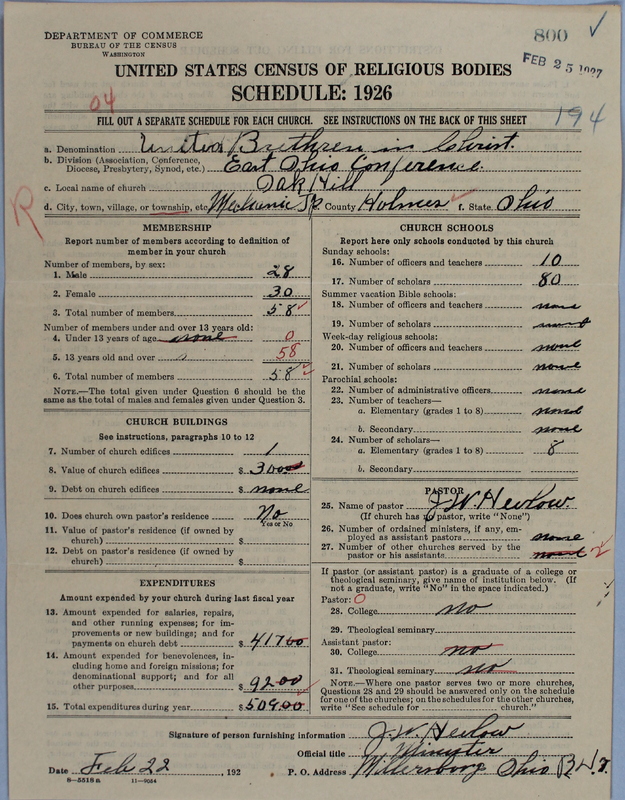 DEPARTMENT OF COMMERCE
BUREAU OF THE CENSUS
WASHINGTON
800 ✓
FEB 25 1927
UNITED STATES CENSUS OF RELIGIOUS BODIES
SCHEDULE: 1926
04
FILL OUT A SEPARATE SCHEDULE FOR EACH CHURCH. SEE INSTRUCTIONS ON THE BACK OF THIS SHEET
194
a. Denomination United Brethren in Christ.
b. Division (Association, Conference, Diocese, Presbytery, Synod, etc.) East Ohio Conference.
c. Local name of church Oak Hill
d. City, town, village, or township, etc. Mechanic Tp. County Holmes ✓ f. State Ohio
R
MEMBERSHIP
Report number of members according to definition of
member in your church
Number of members, by sex:
1. Male 28
2. Female 30
3. Total number of members 58 ✓
Number of members under and over 13 years old:
4. Under 13 years of age none 0
5. 13 years old and over 58
6. Total number of members 58 ✓
NOTE.—The total given under Question 6 should be
same as the total of males and females given under Question 3.
CHURCH BUILDINGS
See instructions, paragraphs 10 to 12
7. Number of church edifices 1
8. Value of church edifices $ 3000
9. Debt on church edifices $ none
10. Does church own pastor's residence No
Yes or No
11. Value of pastor's residence (if owned by
church) $
12. Debt on pastor's residence (if owned by
church) $
EXPENDITURES
Amount expended by your church during last fiscal year
13. Amount expended for salaries, repairs,
and other running expenses; for im-
provements or new buildings; and for
payments on church debt $ 417 00
14. Amount expended for benevolences, in-
cluding home and foreign missions; for
denominational support; and for all
other purposes $ 92.00
15. Total expenditures during year $ 509.00
CHURCH SCHOOLS
Report here only schools conducted by this church
Sunday schools:
16. Number of officers and teachers 10
17. Number of scholars 80
Summer vacation Bible schools:
18. Number of officers and teachers none
19. Number of scholars none
Week-day religious schools:
20. Number of officers and teachers none
21. Number of scholars none
Parochial schools:
22. Number of administrative officers none
23. Number of teachers—
a. Elementary (grades 1 to 8) none
b. Secondary none
24. Number of scholars—
a. Elementary (grades 1 to 8) 8
b. Secondary
PASTOR
25. Name of pastor J. W. Hevlow.
(If church has no pastor, write "None")
26. Number of ordained ministers, if any, em-
ployed as assistant pastors none
27. Number of other churches served by the
pastor or his assistants none 2
If pastor (or assistant pastor) is a graduate of a college or
theological seminary, give name of institution below. (If
not a graduate, write "No" in the space indicated.)
Pastor: 0
28. College no
29. Theological seminary
Assistant pastor:
30. College no
31. Theological seminary no
NOTE.—Where one pastor serves two or more churches,
Questions 28 and 29 should be answered only on the schedule
for one of the churches; on the schedules for the other churches,
write "See schedule for church."
Signature of person furnishing information J. W. Hevlow
Official title Minister
Date Feb 22, 192 P. O. Address Millersburg Ohio
8—5518 B 11—9054